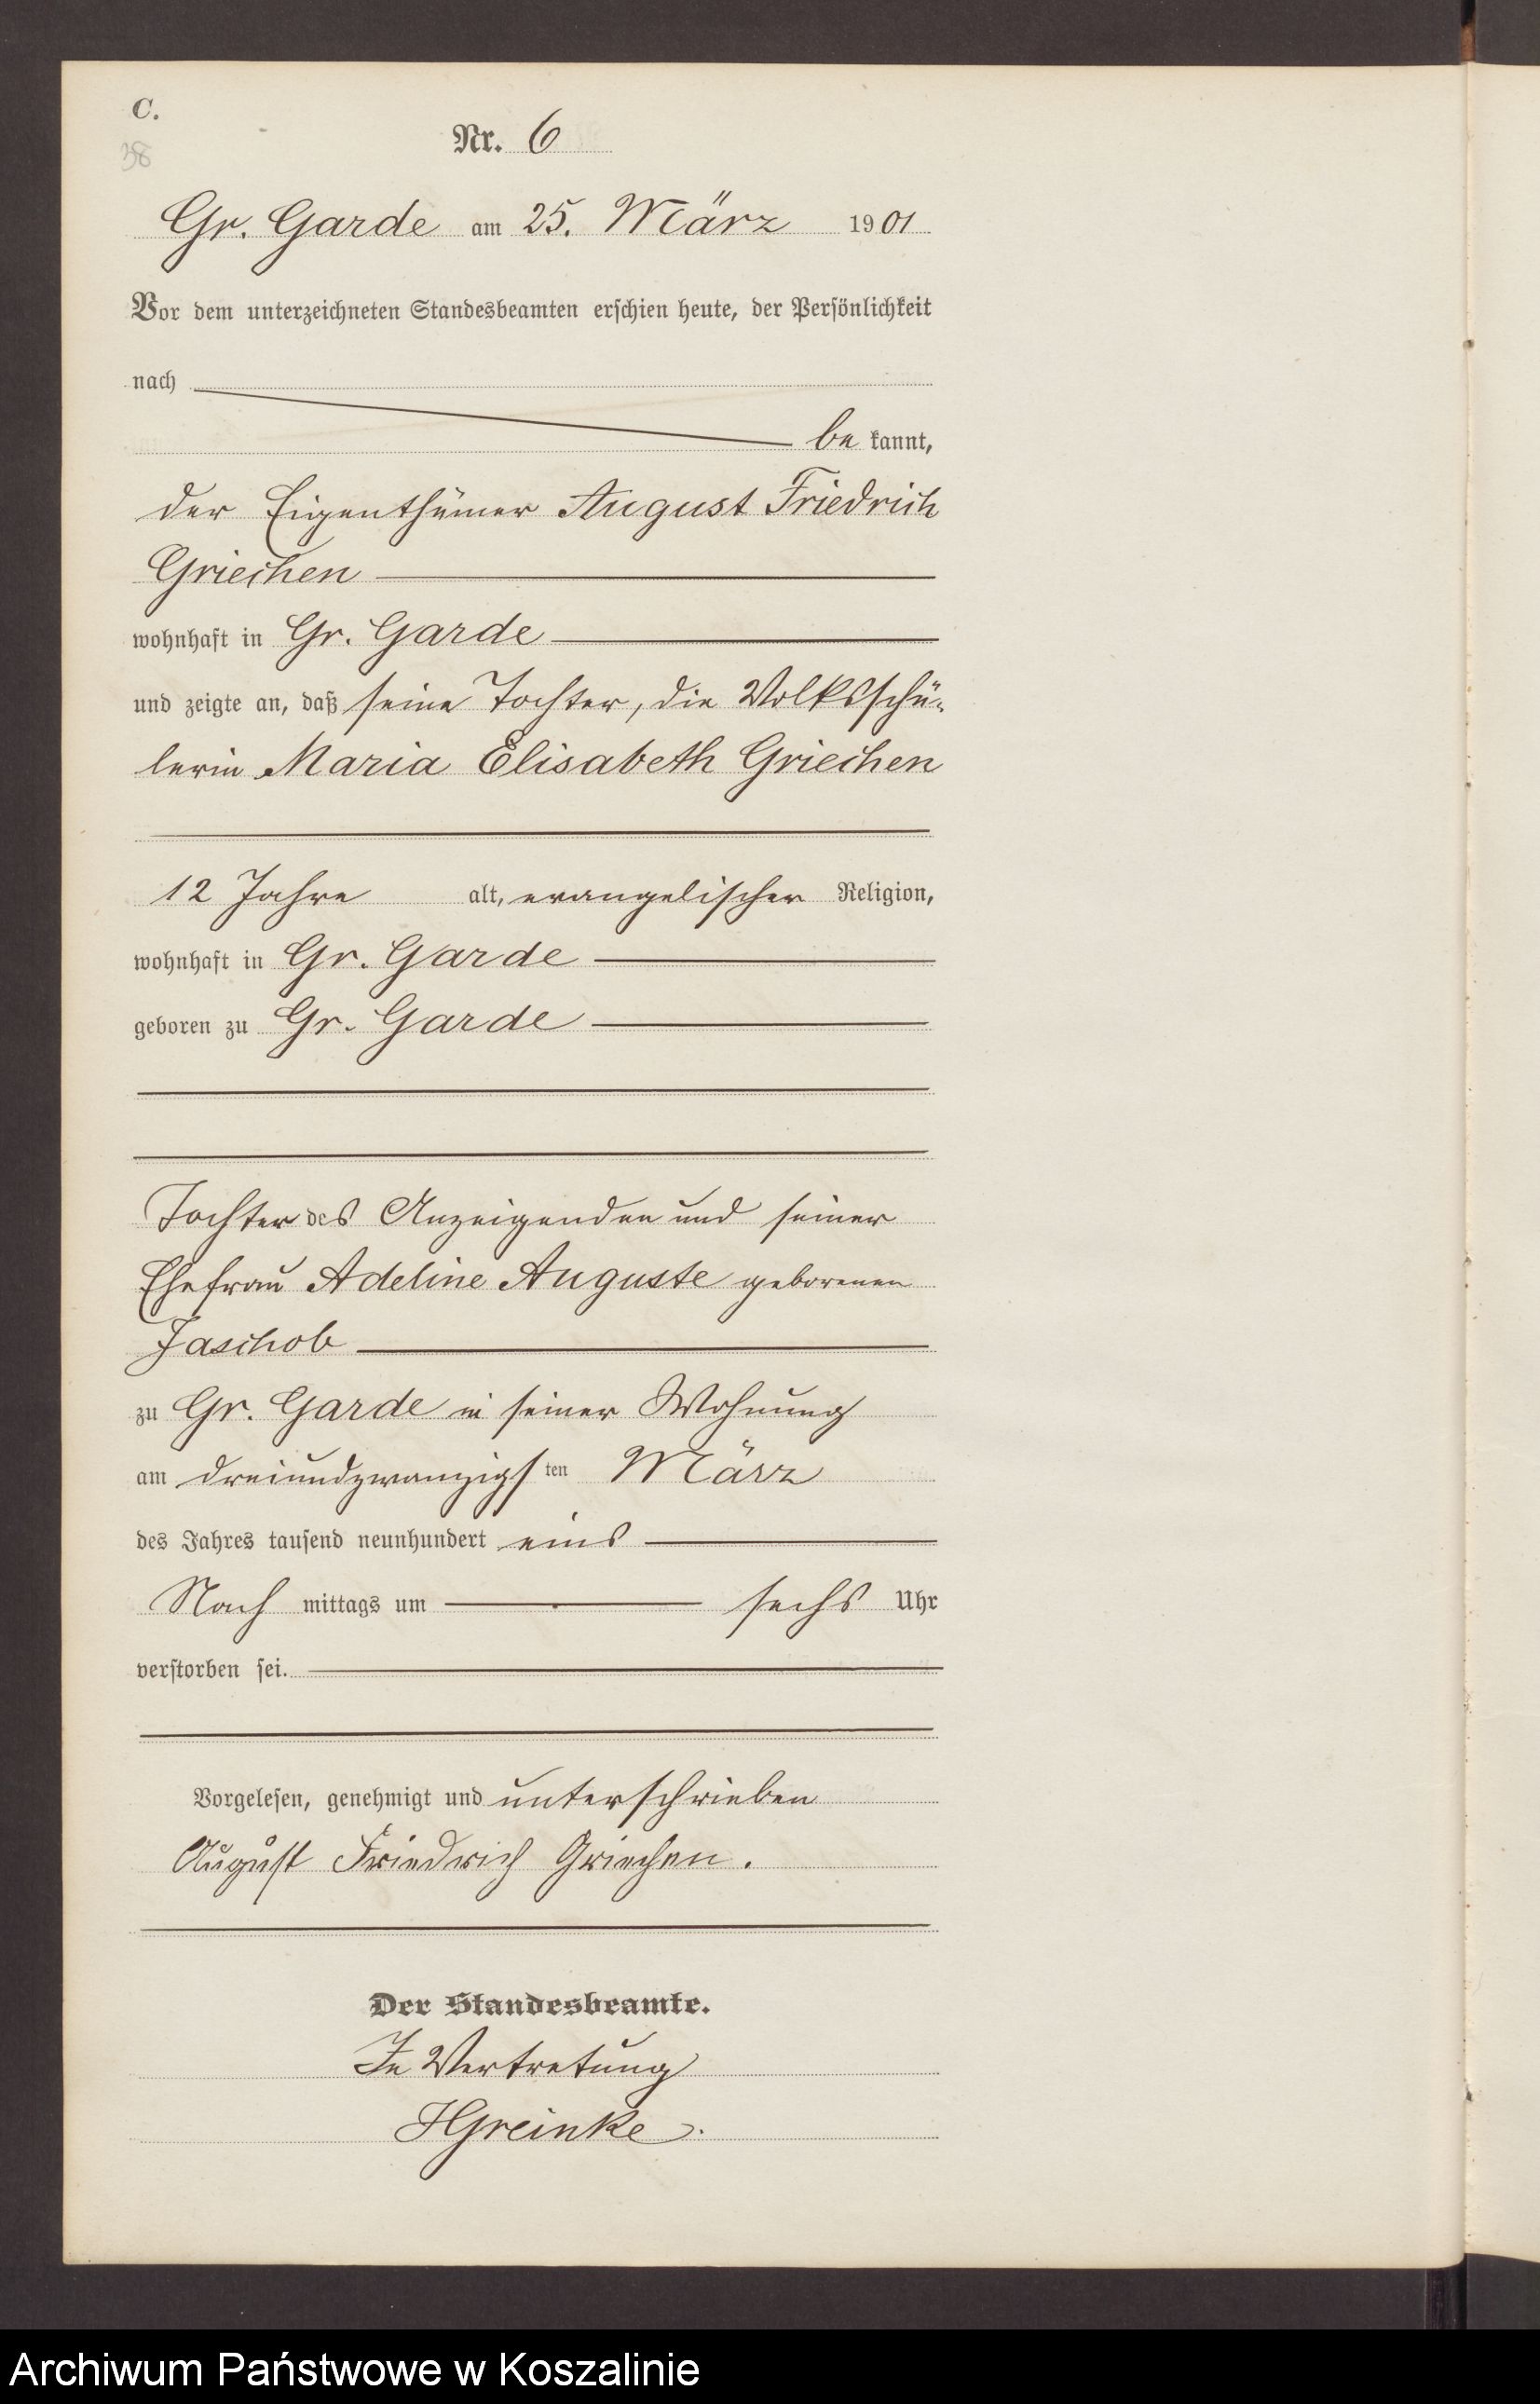 C.
38
Nr. 6
Gr. Garde am 25. März 1901
Vor dem unterzeichneten Standesbeamten erschien heute, der Persönlichkeit
nach
be kannt,
der Eigenthümer August Friedrich
Griechen
wohnhaft in Gr. Garde
und zeigte an, daß seine Tochter, die Volksschü-
lerin Maria Elisabeth Griechen
12 Jahre alt, evangelischer Religion,
wohnhaft in Gr. Garde
geboren zu Gr. Garde
Tochter des Anzeigenden und seiner
Ehefrau Adeline Auguste geborenen
Jaschob
zu Gr. Garde in seiner Wohnung
am dreiundzwanzigsten März
des Jahres tausend neunhundert eins
Nach mittags um sechs Uhr
verstorben sei.
Vorgelesen, genehmigt und unterschrieben
August Friedrich Griechen.
Der Standesbeamte.
In Vertretung
HGreinke.
Archiwum Państwowe w Koszalinie